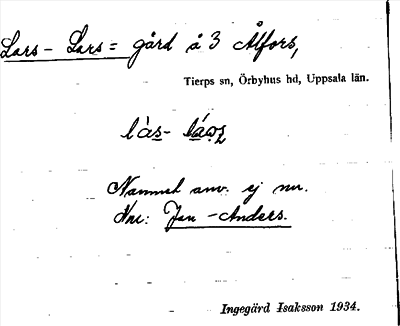 Lars-Lars = gård å 3 Ålfors,
Tierps sn, Örbyhus hd, Uppsala län.
làs- láṣ
Namnet anv. ej nu.
Nu: Jan-Anders.
Ingegärd Isaksson 1934.